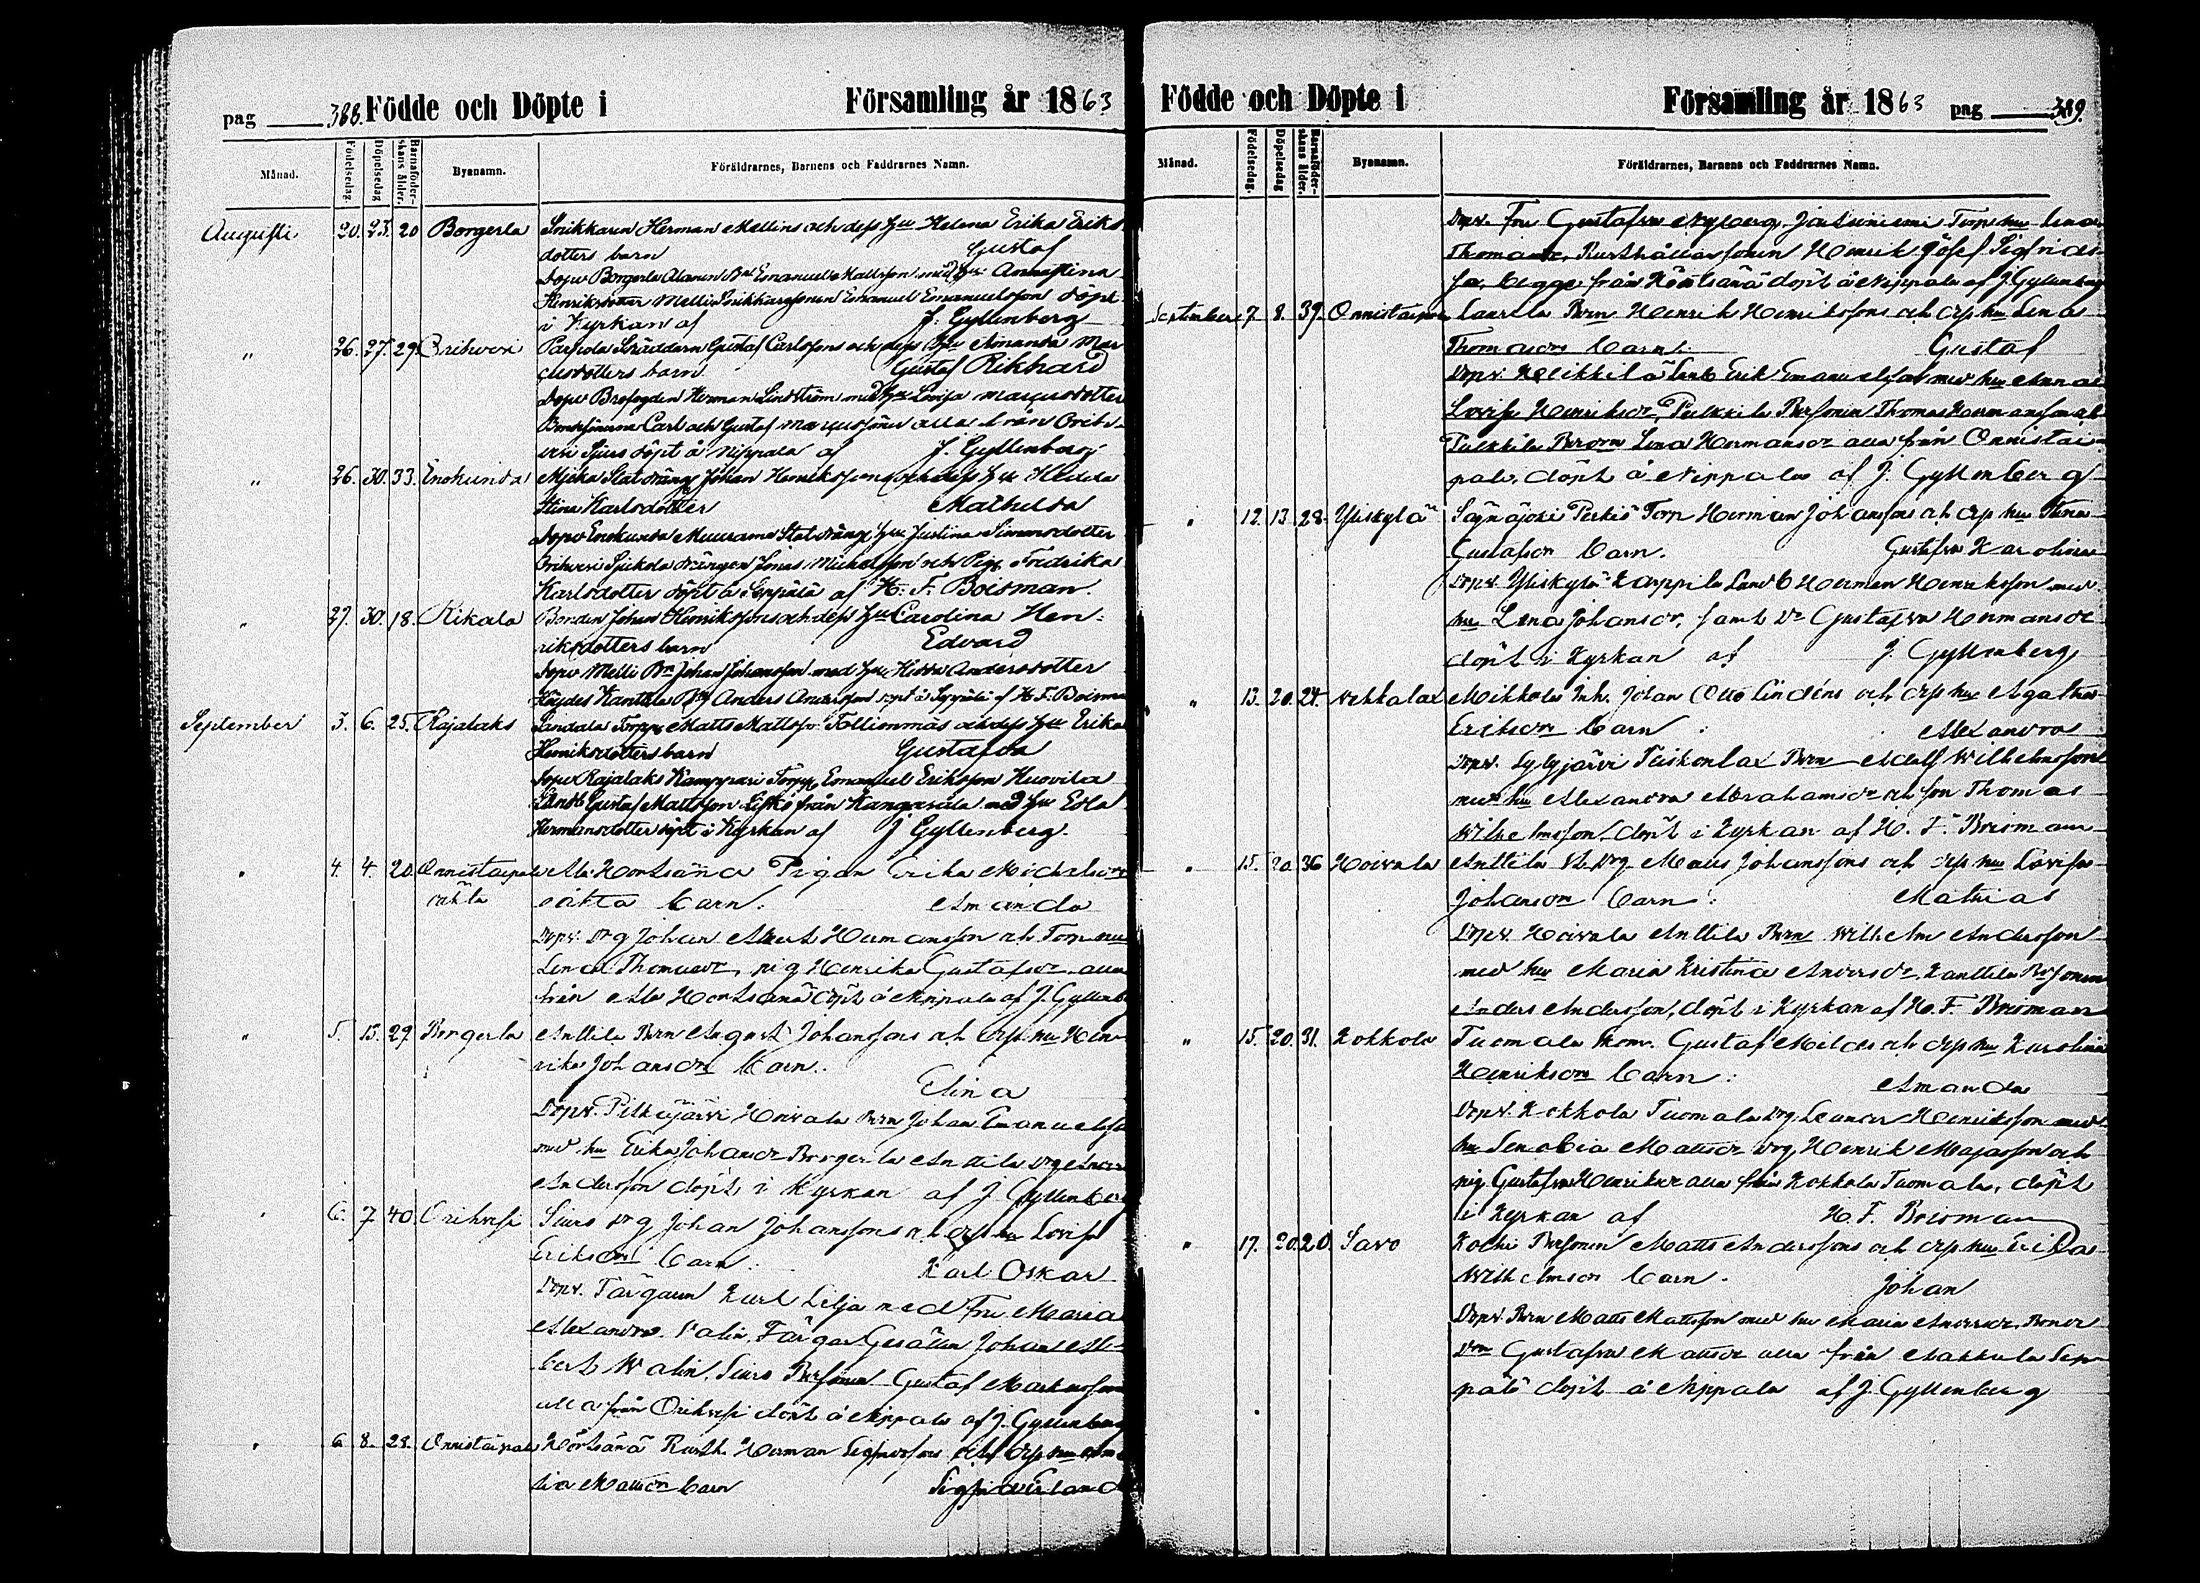 pag 388. Födde och Döpte i Församling år 1863
Månad. Födelsedag. Döpelsedag Barnaföder-skans ålder. Byanamn. Föräldrarnes, Barnens och Faddrarnes Namn.
Augusti 20. 23. 20 Borgerla Snikkaren Herman Mellins och dess Hu Helena Erika Eriks
dotters barn Gustaf
Dopv Borgerla Emanuel Mattsson med Annastina
Henriksdotter Melli Emanuel Emanuelsson döpt
i Kyrkan af J. Gyllenberg
" 26. 27. 29. Orihvesi Skräddarn Gustaf Carlssons och dess Hu Amanda Mar
cusdotters barn Gustaf Rikhard
Dopv Herman Lindström med Hu Lovisa Marcusdotter
Bondsönerna Carl och Gustaf Marcussöner alla från Orih-
vesi Siuro döpt å Nippala af J. Gyllenberg
" 26. 30. 33. Enokunda Statdräng Johan Henrikssons och dess Hu Hedda
Stina Karlsdotter Mathilda
Dopv Enokunda Muurame Statdräng Hu Justina Simonsdotter
Orihvesi drängen Jonas Michelsson och Pig. Fredrika
Karlsdotter döpt å Seppälä af H. F. Boisman.
" 27. 30. 18. Hikala Bonden Johan Henrikssons och dess Hu Carolina Hen-
riksdotters barn Edvard
Dopv Melli Bn Johan Johansson med Hu Hedda Andersdotter
Anders Andersson döpt å Seppälä af H. F. Boisman
September 3. 6. 25. Rajalaks Torp Matts Mattsson och dess Hu Erika
Henriksdotters barn Gustafva
Dopv Rajalaks Kamppari Torp Emanuel Eriksson Huovila
Gustaf Mattsson från Kangasala med Hu Edla
Hermansdotter döpt i Kyrkan af J Gyllenberg.
" 4. 4. 20. Onnistaipal Ala Hortsänä Pigan Erika Michelsdrs
oäkta oäkta barn. Amanda
Dopv. drg Johan Albert Hermansson och Torp. hu
Lena Thomasdr, pig Henrika Gustafsdr alla
från Ala Hortsänä döpt å Nippala af J. Gyllenb
" 5. 13. 29. Borgerla Anttila Bon August Johanssons och dess hu Hen-
rika Johansdrs barn.
Elina
Dopv. Pitkäjärvi Hoivala Bon Johan Emanuelsson
med hu Erika Johansdr Borgerla Anttila drg Anders
Andersson döpt i Kyrkan af J. Gyllenberg
" 6. 7. 40. Orihvesi Siuro drg Johan Johanssons och dess hu Lovisa
Eriksdrs barn. Karl Oskar
Dopv. Färgaren Karl Lilja med Fru Maria
Alexandra Valin, Färgar Gesällen Johan Al-
bert Walin, Siuro Bonsonen Gustaf Markusson
alla från Orihvesi döpt å Nippala af J. Gyllenberg
" 6. 8. 28. Onnistaipal Hörtsänä Rusth. Herman Sigfridssons och dess hu
Mattsdrs barn Sigfrid Erland
Födde och Döpte i Församling år 1863 pag 389.
Månad. Födelsedag. Döpelsedag Barnaföder-skans ålder. Byanamn. Föräldrarnes, Barnens och Faddrarnes Namn.
Dopv. Fru Gustafva Nyberg, Torp. hu Lena
Thomasdr, Rusthållarsonen Henrik Josef Sigfrids-
son, begge från Hörtsänä döpt å Nippala af J. Gyllenberg
September 7. 8. 39. Onnistaipal Laurila Bon Henrik Henrikssons och dess hu Lena
Thomasdrs barn. Gustaf
Dopv. Heikkilä Erik Emanuelsson med hu Anna
Lovisa Henriksdr, Pulkkila Bonsonen Thomas Hermansson och
Pulkkila Lena Hermansdr alla från Onnistai-
pale, döpt å Nippala af J. Gyllenberg
" 12. 13. 28. Yliskylä Säynäjoki Torp Herman Johanssons och dess hu Stina
Gustafsdrs barn. Gustafva Karolina
Dopv. Yliskylä Karppila Landb Herman Henriksson med
hu Lena Johansdr, samt Gustafva Hermansdr
döpt i Kyrkan af J. Gyllenberg
" 13. 20. 24. Vehkalax Mikkola Inh. Johan Otto Lindéns och dess hu Agatha
Eriksdrs barn Alexandra
Dopv. Lyliyjärvi Bon Adolf Wilhelmsson
med hu Alexandra Abrahamsdr och son Thomas
Wilhelmsson, döpt i Kyrkan af H. F. Boisman
" 15. 20. 36 Hoivala Anttila drg Johanssons och dess hu Lovisa
Johansdrs barn: Mathias
Dopv. Hoivala Anttila Bon Wilhelm Andersson
med hu Maria Kristina Andersdr, Kanttila Bonsonen
Anders Andersson, döpt i Kyrkan af H. F. Boisman
" 15. 20. 31. Kokkola Tuomala Gustaf och dess hu Karolina
Henriksdrs barn: Amanda
Dopv. Kokkola Tuomala drg Leander Henriksson med
hu Senobia Mattsdr drg Henrik och
pig Gustafva Henriksdr alla från Kokkola Tuomala, döpt
i Kyrkan af H. F. Boisman
" 17. 20. 20. Savo Bonsonen Matts Anderssons och dess hu Erika
Wilhelmsdrs barn. Johan
Dopv. Bon Matts Mattsson med hu Maria Andersdr, Bonde
Gustafva Mattsdr alla från Sep-
pälä döpt å Nippala af J. Gyllenberg